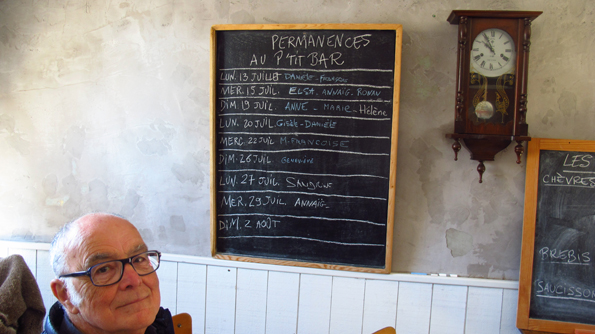 PERMANENCES
AU P'TIT BAR
LUN. 13 JUILLET DANIÈLE-
MER. 15 JUIL. ELSA. ANNAÏG. RONAN
DIM. 19 JUIL. ANNE - MARIE-Hélène
LUN. 20 JUIL. Gisèle-Danièle
MERC. 22 JUIL M. FRANCOISE
DIM. 26 JUIL. GENEVIÈVE
LUN. 27 JUIL. SANDRINE
MER. 29 JUIL. ANNAÏG
DIM. 2 AOÛT
LES
CHÈVRES
BREBIS
SAUCISSON